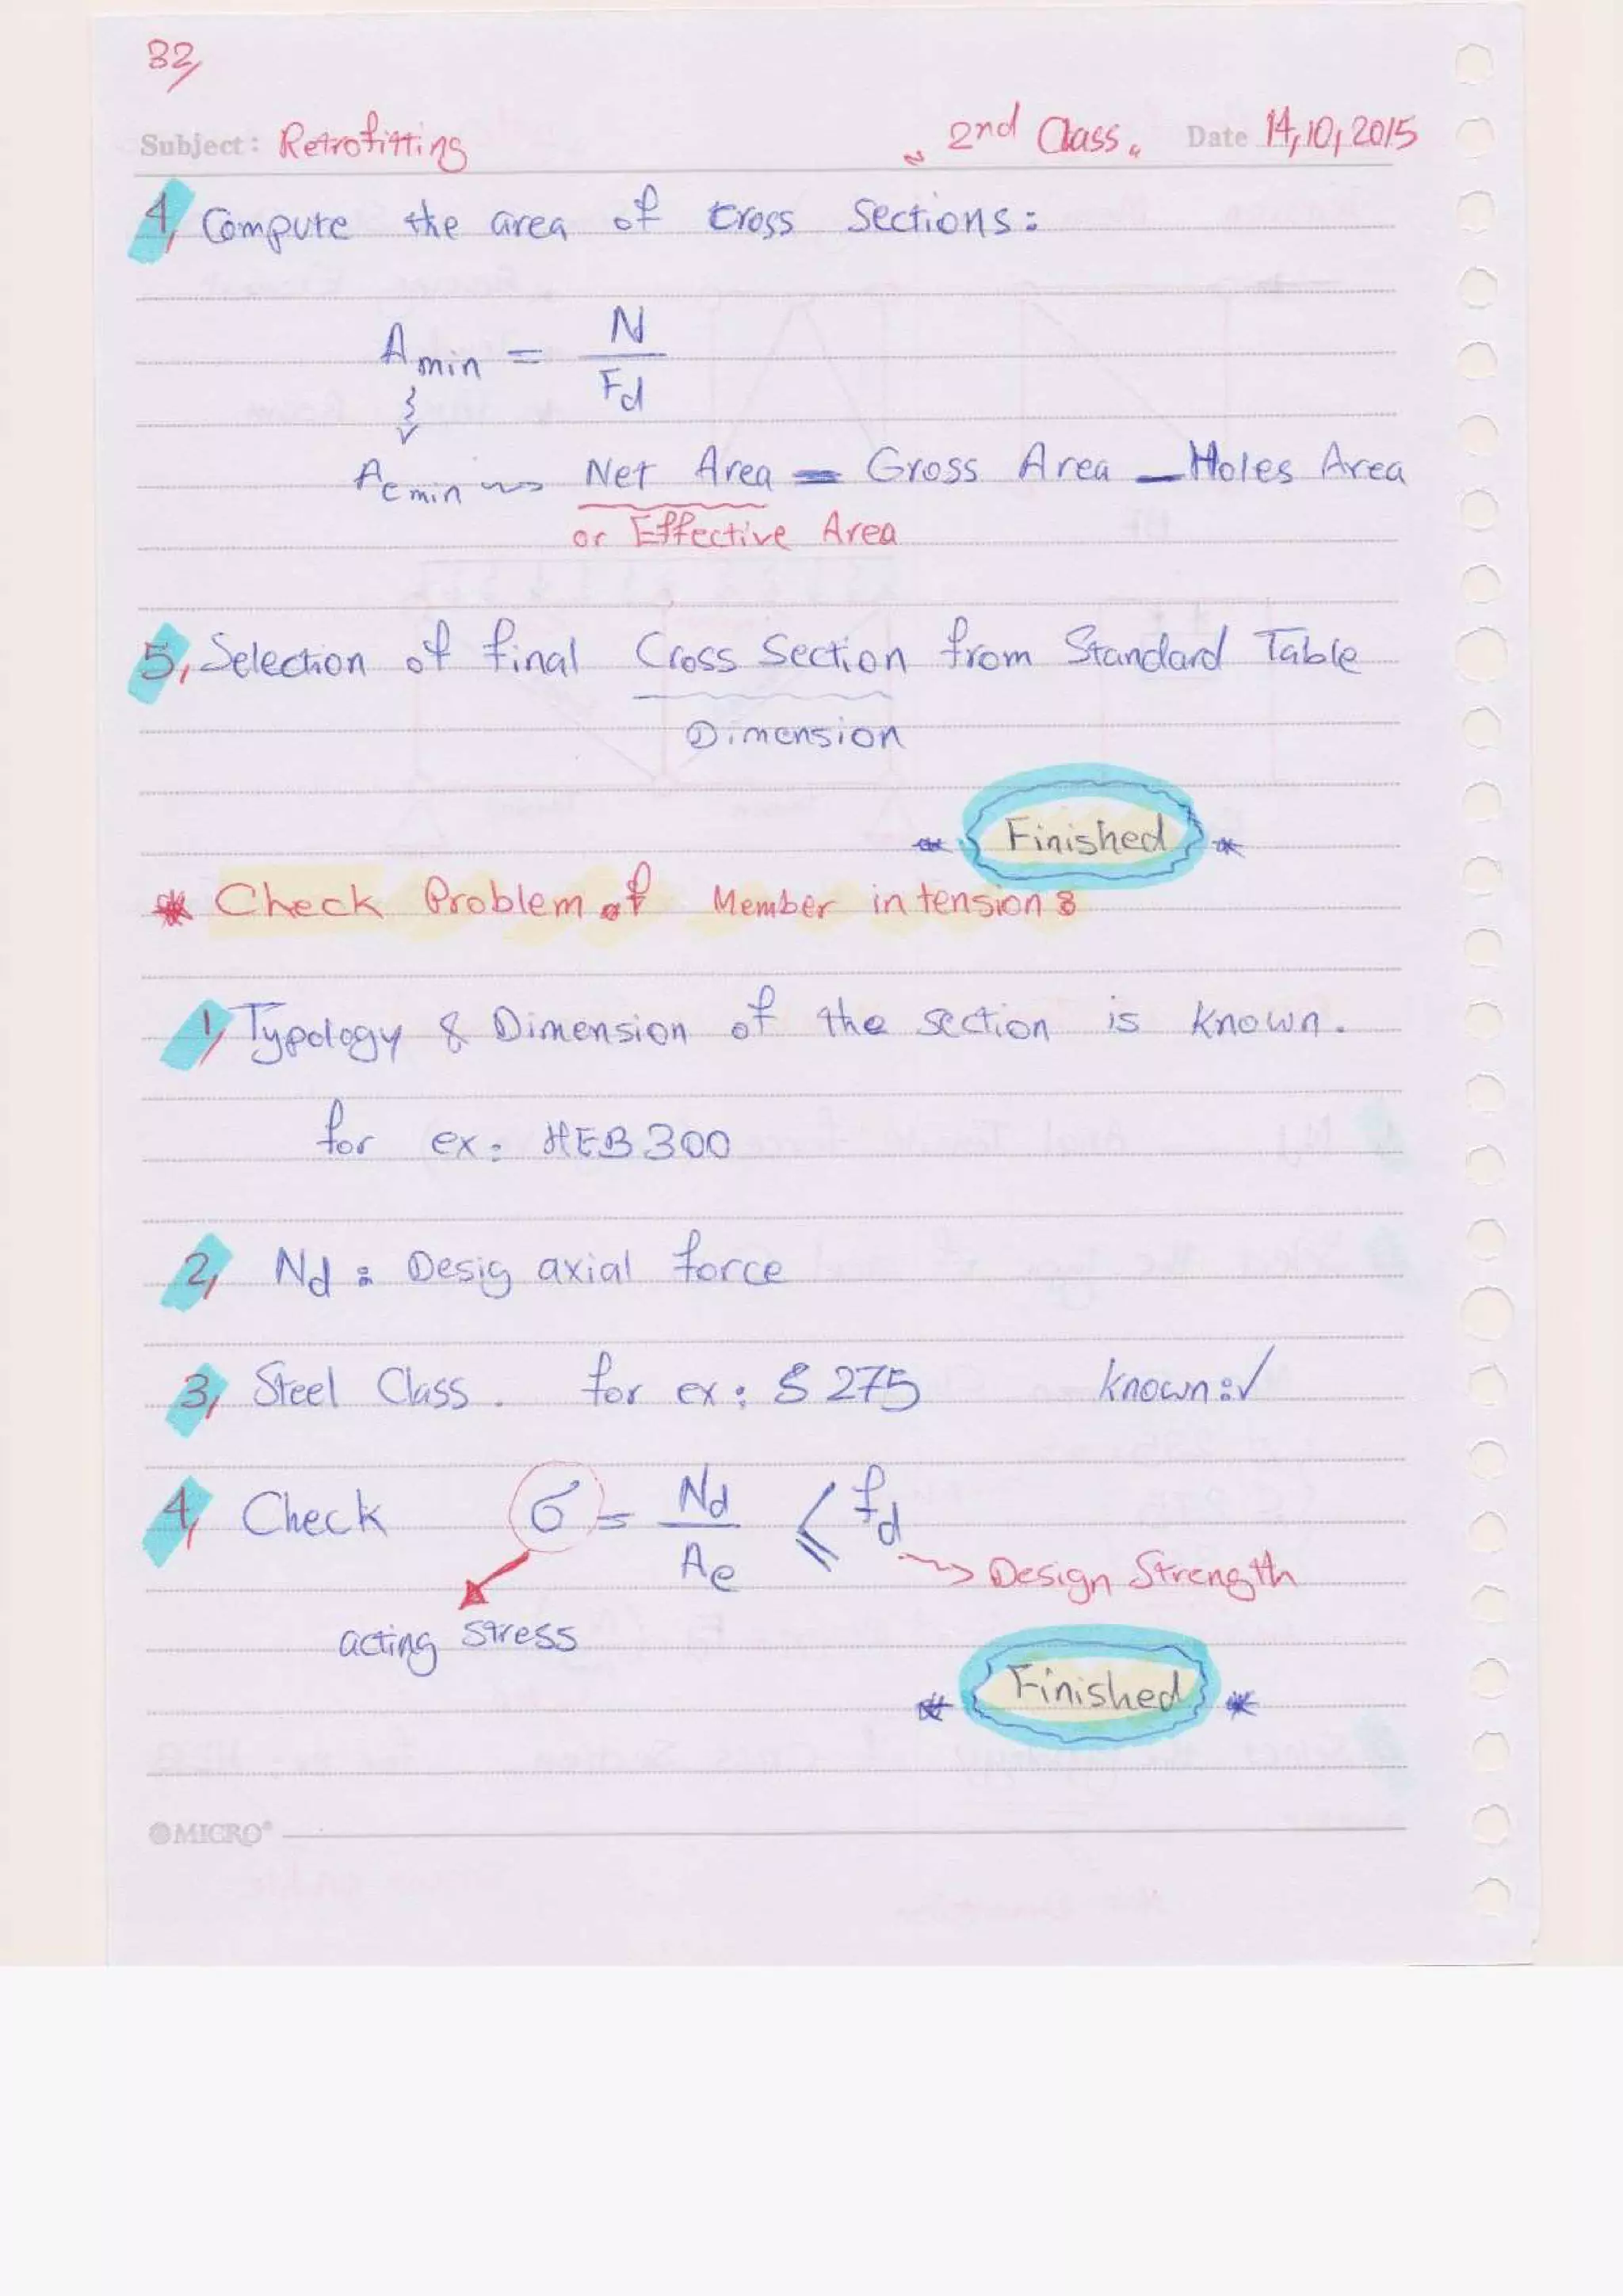 32,
Subject: Retrofitting „ 2nd Class „ Date 14,10,2015
4, Compute the area of cross sections:
A min = N / Fd
Ae min ⇝ Net Area = Gross Area - Holes Area
or Effective Area
5, Selection of final Cross Section from Standard Table
Dimension
* Finished *
* Check Problem of Member in tension:
1, Typology & Dimension of the section is known.
for ex: HEB 300
2, Nd: Desig axial force
3, Steel Class. for ex: S 275 known: ✓
4, Check σ = Nd / Ae ≤ fd
⇝ Design Strength
acting stress
* Finished *
MICRO